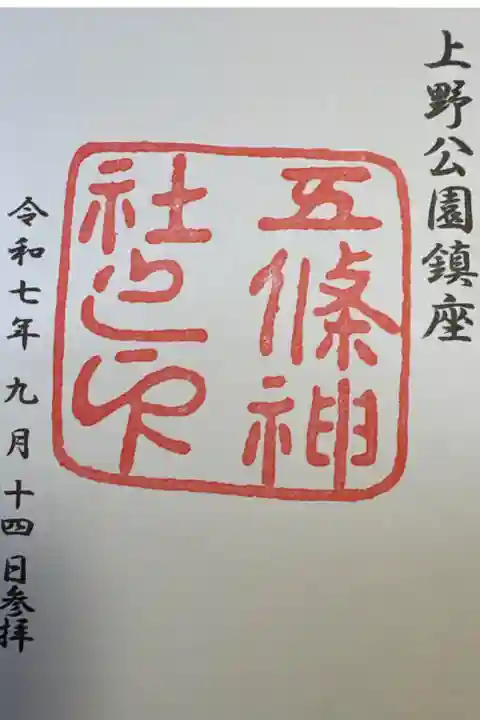 上野公園鎮座
五條神
社之印
令和七年九月十四日参拝